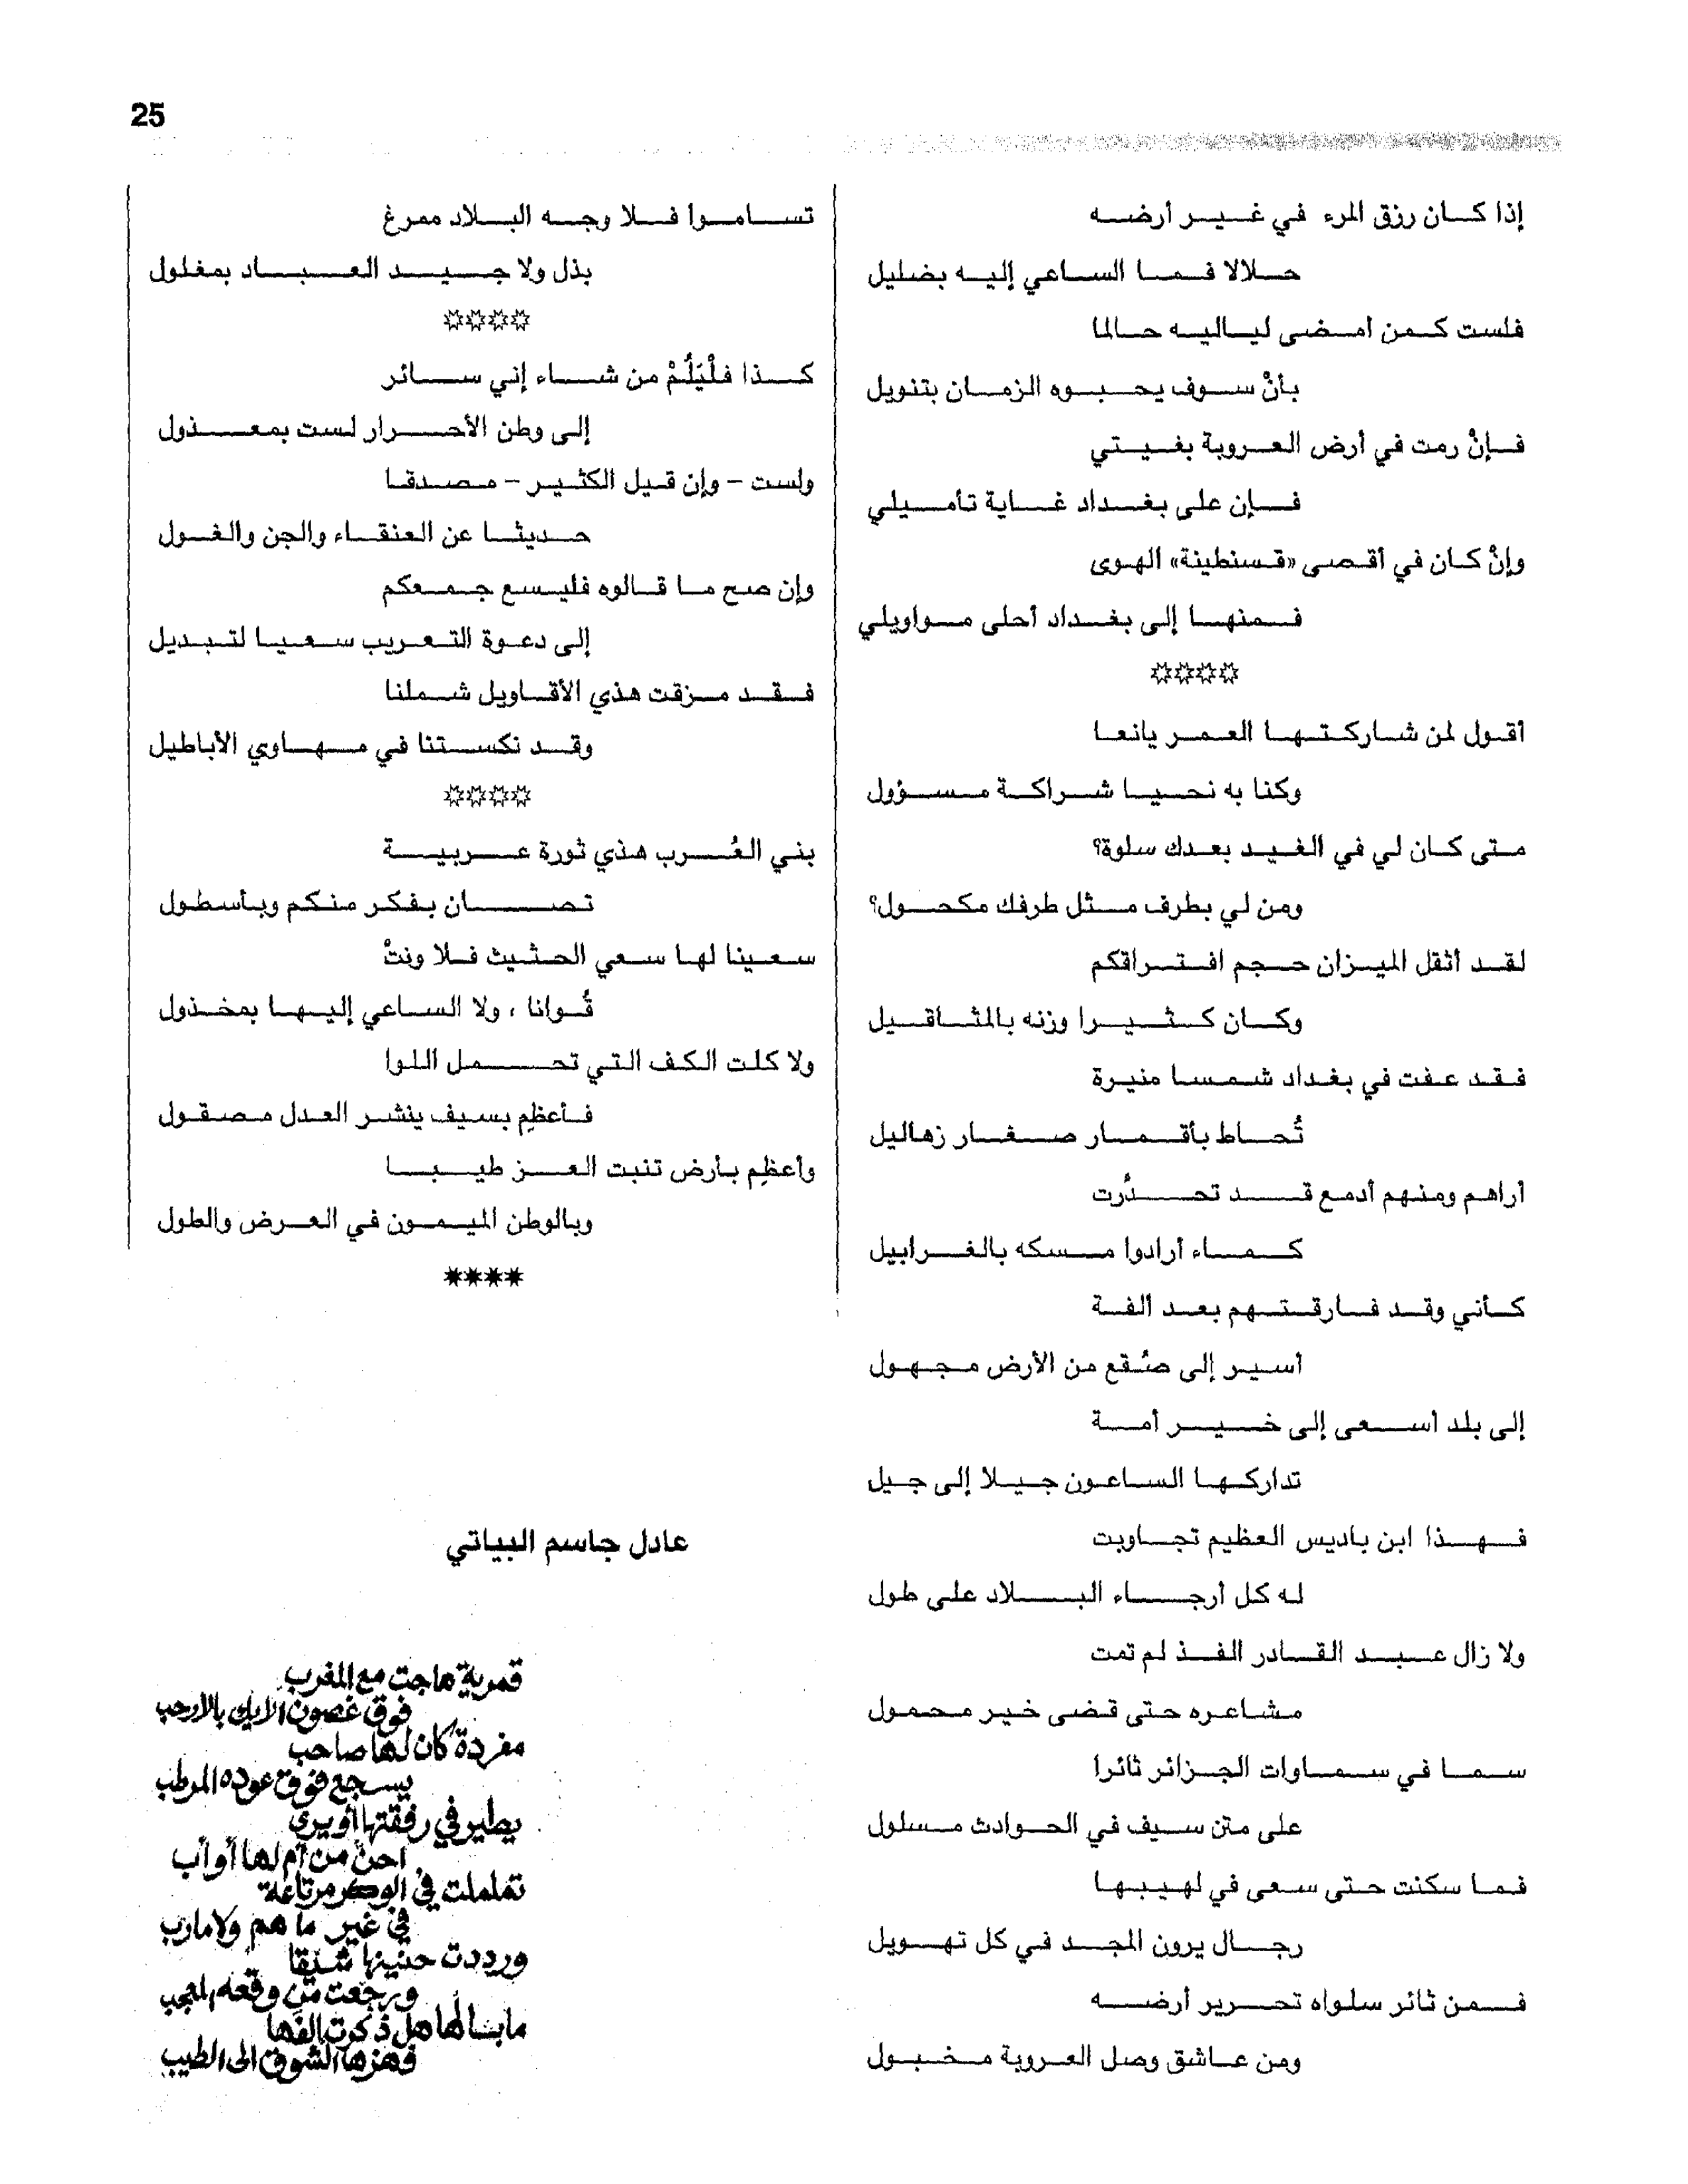 25
إذا كان رزق المرء في غير أرضه
حلالا فما الساعي إليه بضليل
فلست كمن أمضى لياليه حالما
بأنْ سوف يحبوه الزمان بتنويل
فإنْ رمت في أرض العروبة بغيتي
فإن على بغداد غاية تأميلي
وإنْ كان في أقصى «قسنطينة» الهوى
فمنها إلى بغداد أحلى مواويلي
☼☼☼☼
أقول لمن شاركتها العمر يانعا
وكنا به نحيا شراكة مسؤول
متى كان لي في الغيد بعدك سلوة؟
ومن لي بطرف مثل طرفك مكحول؟
لقد أثقل الميزان حجم افتراقكم
وكان كثيرا وزنه بالمثاقيل
فقد عفت في بغداد شمسا منيرة
تُحاط بأقمار صغار زهاليل
أراهم ومنهم أدمع قد تحدُّرت
كماء أرادوا مسكه بالغرابيل
كأني وقد فارقتهم بعد ألفة
أسير إلى صُقع من الأرض مجهول
إلى بلد أسعى إلى خير أمة
تداركها الساعون جيلا إلى جيل
فهذا ابن باديس العظيم تجاوبت
له كل أرجاء البلاد على طول
ولا زال عبد القادر الفذ لم تمت
مشاعره حتى قضى خير محمول
سما في سماوات الجزائر ثائرا
على متن سيف في الحوادث مسلول
فما سكنت حتى سعى في لهيبها
رجال يرون المجد في كل تهويل
فمن ثائر سلواه تحرير أرضه
ومن عاشق وصل العروبة مخبول
تساموا فلا وجه البلاد ممرغ
بذل ولا جيد العباد بمغلول
☼☼☼☼
كذا فلْيَلُمْ من شاء إني سائر
إلى وطن الأحرار لست بمعذول
ولست – وإن قيل الكثير – مصدقا
حديثا عن العنقاء والجن والغول
وإن صح ما قالوه فليسع جمعكم
إلى دعوة التعريب سعيا لتبديل
فقد مزقت هذي الأقاويل شملنا
وقد نكستنا في مهاوي الأباطيل
☼☼☼☼
بني العُرب هذي ثورة عربية
تصان بفكر منكم وبأسطول
سعينا لها سعي الحثيث فلا ونتْ
قُوانا ، ولا الساعي إليها بمخذول
ولا كلت الكف التي تحمل اللوا
فأعظِم بسيف ينشر العدل مصقول
وأعظِم بأرض تنبت العز طيبا
وبالوطن الميمون في العرض والطول
✷✷✷✷
عادل جاسم البياتي
قمرية هاجت مع المغرب
فوق غصون الأيك بالأرحب
مفردة كان لها صاحب
يسجع فوق عوده المرطب
يطير في رفقتها
أحن من أم لها أو أب
تململت في الوكر مرتاعة
في غير ما هم ولا مارب
ورددت حنينها شيقا
ورجعت من وقعه
هل ذكرت إلفها
فهزها الشوق إلى الطيب